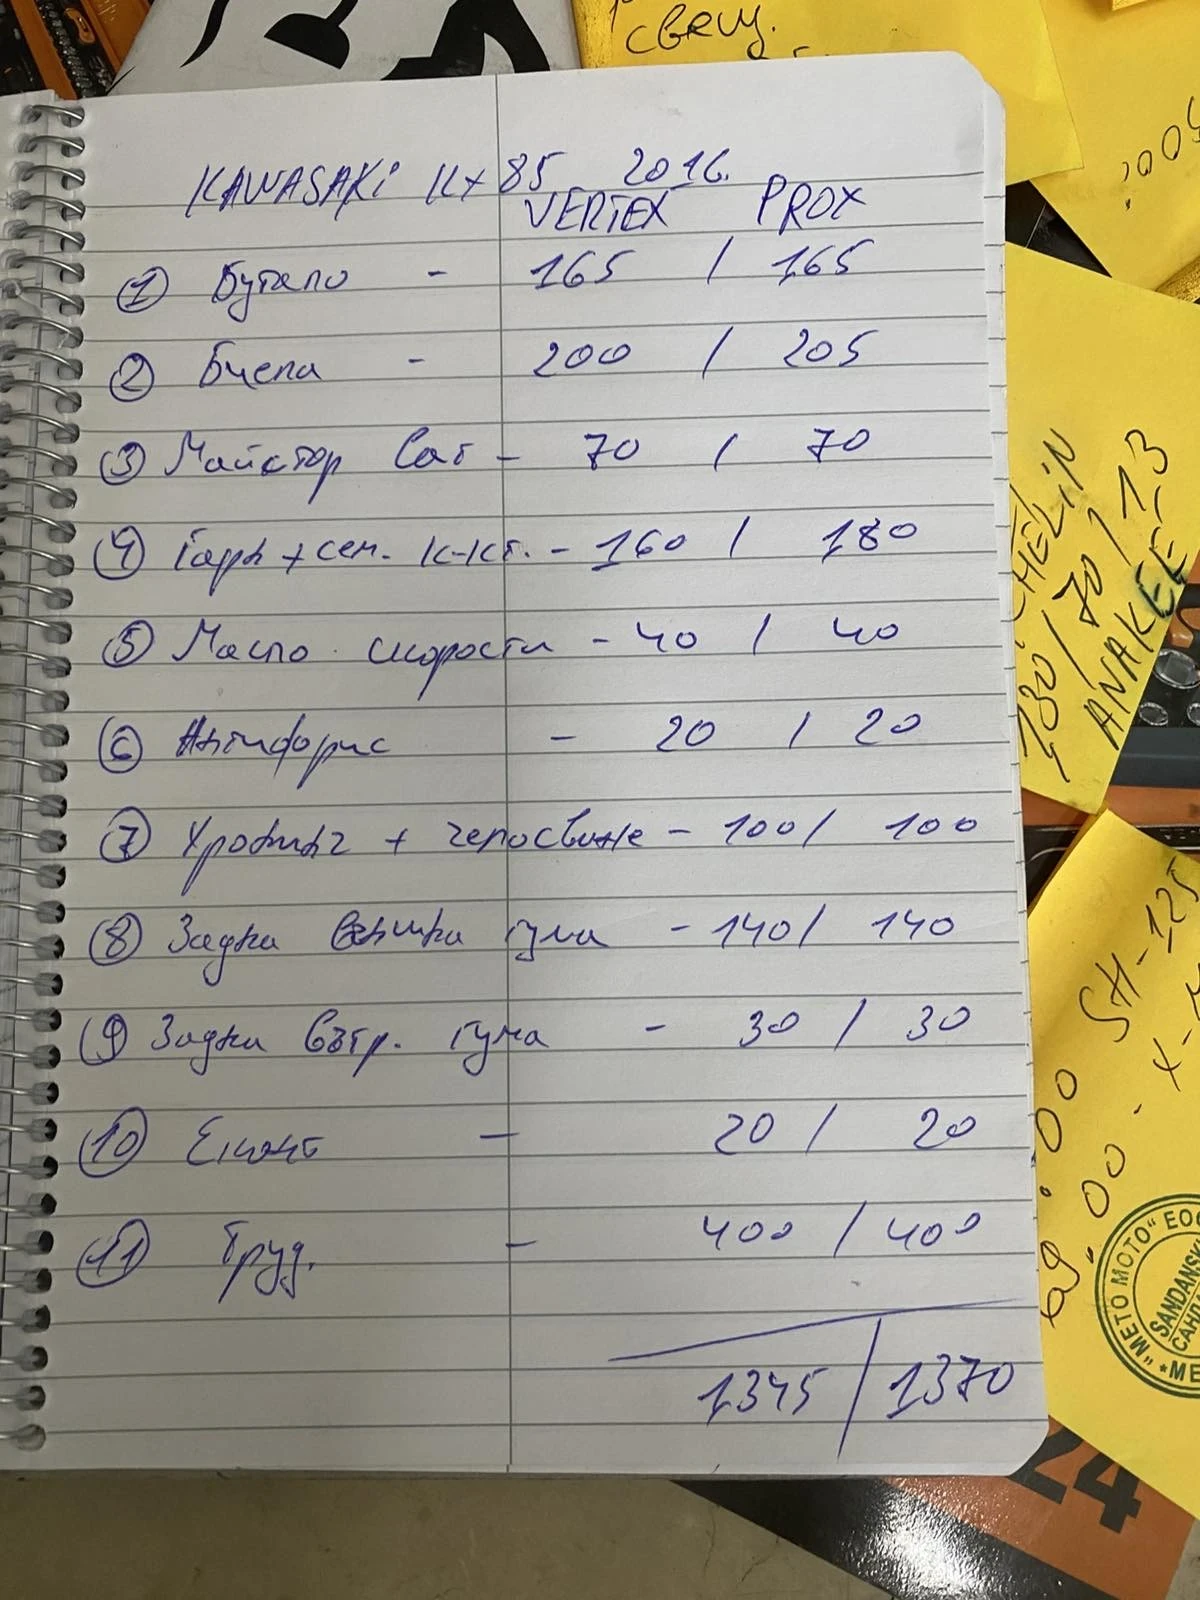 свещ.
KAWASAKi Kx 85 2016.
VERTEX PROX
① Бутало - 165 / 165
② Биела - 200 / 205
③ Майстор Сет - 70 / 70
④ Гарн + сем. к-кт. - 160 / 180
⑤ Масло скорости - 40 / 40
⑥ Антифриз - 20 / 20
⑦ + - 100 / 100
⑧ Задна външна гума - 140 / 140
⑨ Задна вътр. гума - 30 / 30
⑩ - 20 / 20
⑪ Труд. - 400 / 400
1345 / 1370
130 / 70 / 13
ANAKEE
SH-125
"МЕТО МОТО" ЕОО
SANDANSK
24